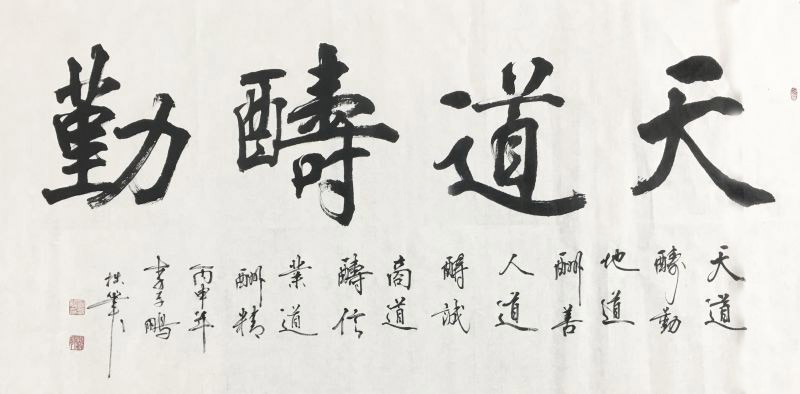 天道醻勤
天道
醻勤
地道
酬善
人道
醻誠
商道
醻信
業道
酬精
丙申年
李子鵬
拙筆